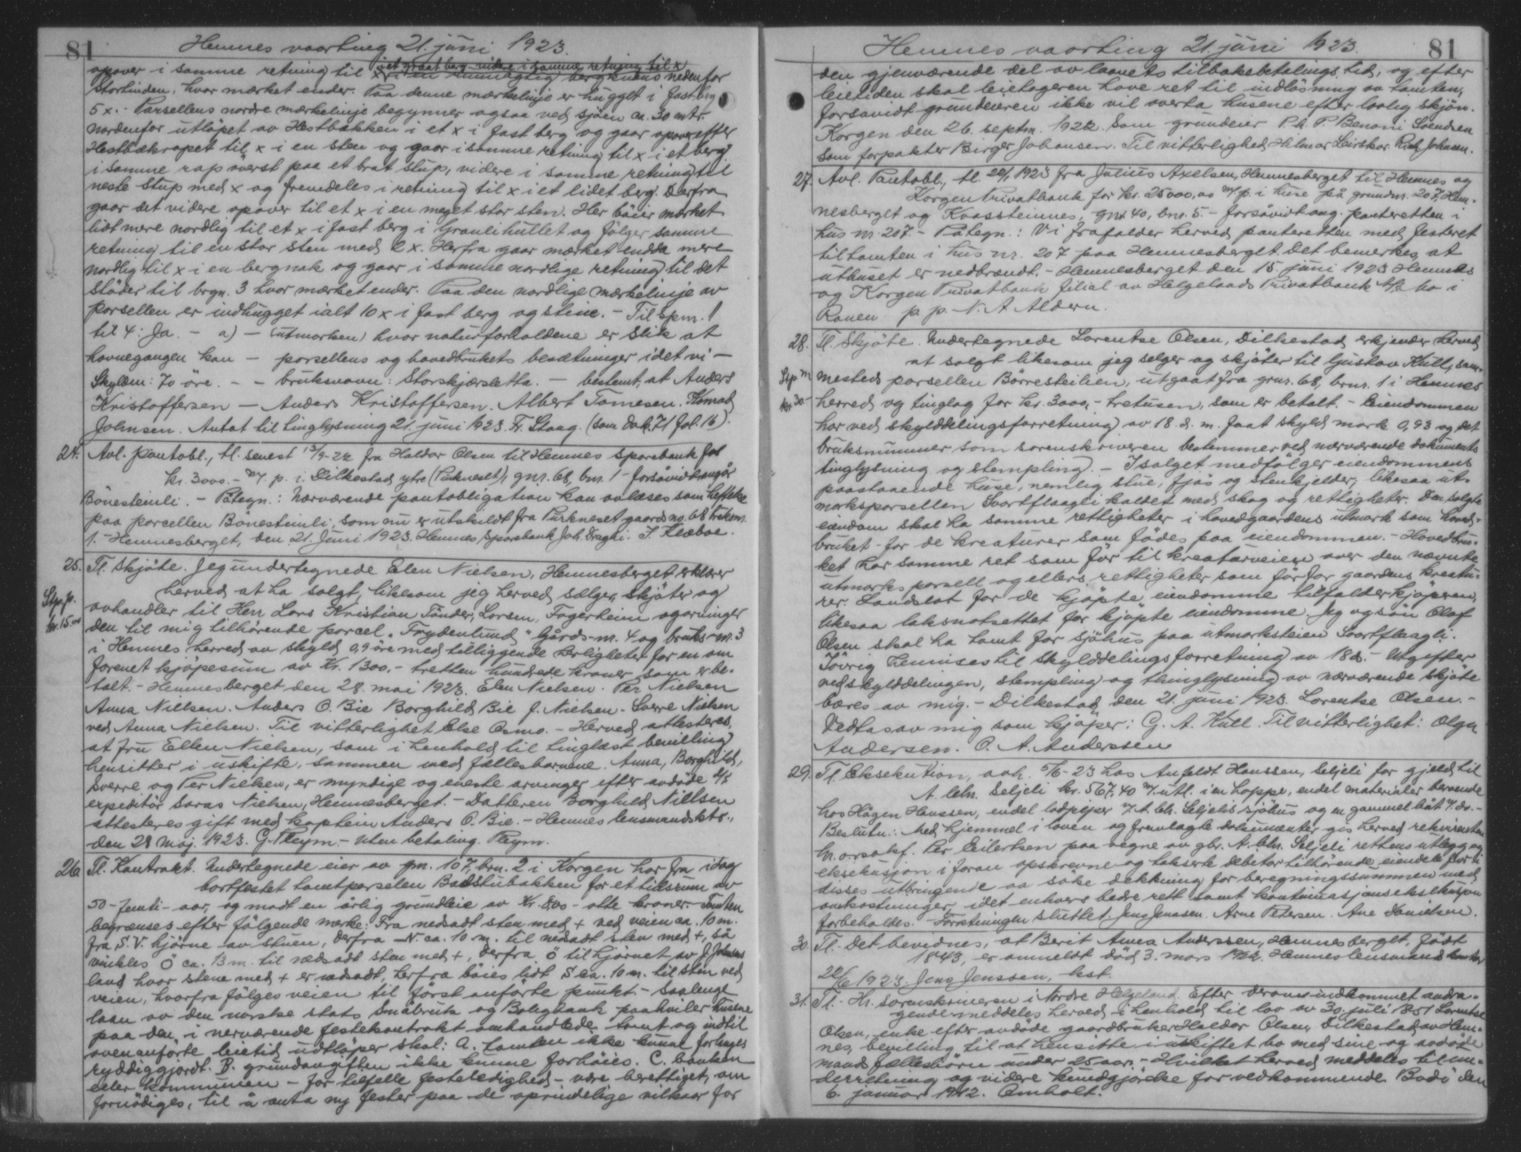 81
Hemnes vaarting 21. juni 1923.
opover i samme retning til x i et graat berg videre i samme retning til x
nedenfor
Storlinden, hvor mærket ender. Paa denne mærkelinje er hugget i fast berg
5 x. Parsellens nordre mærkelinje begynner ogsaa ved sjöen ca. 30 mtr.
nordenfor utlöpet av Hestbakken i et x i fast berg og gaar opover efter
til x i en sten og gaar i samme retning til x i et berg
i samme rap överst paa et brat stup, videre i samme retning til
neste stup med x og fremdeles i retning til x i et lidet berg. Derfra
gaar det videre opover til et x i en meget stor sten. Her böier mærket
lidt mere nordlig til et x i fast berg i og fölger samme
retning til en stor sten med 2 x. Herfra gaar mærket endda mere
nordlig til x i en bergnak og gaar i samme nordlige retning til det
stöder til brgn. 3 hvor mærket ender. Paa den nordlige mærkelinje av
parsellen er indhugget ialt 10 x i fast berg og stene. - Til spm. 1
til 4: Ja. - a) - (utmarken) hvor naturforholdene er slik at
havnegangen kan - parsellens og hovedbrukets besætninger idet vi -
Skylden: 70 öre. - - bruksnavn: Storskjærsletta. - bestemt, at Anders
Kristoffersen - Anders Kristoffersen. Albert Tömesen. Konrad
Johnsen. Antat til tinglysning 21. juni 1923. Fr. Staag. (som dok. 71 fol. 16).
24. Avl. pantobl., tl. senest fra Haldor Olsen til Hemnes Sparebank for
kr. 3000. - m/ p. i Dilkestad ytre gnr. 68, bnr. 1 - forsaavidt angaar
Bönesteinli. - Paategn.: Nærværende pantobligation kan avlæses som heftelse
paa porcellen Bönesteinli, som nu er utskildt fra gaards no. 68 bruksnr.
1. - Hemnesberget, den 21. juni 1923. Hemnes Sparebank Joh. J. Klæboe.
25. Tl. Skjöte. Jeg undertegnede Elen Nielsen, Hemnesberget erklærer
Stp. p.
kr. 15.00
herved at ha solgt, likesom jeg herved sælger, skjöter og
avhandler til Herr Lars Kristian Tönder Larsen, Fagerheim og arvinger
den til mig tilhörende porcel "Frydenlund" Gårds-nr. 4 og bruks-nr. 3
i Hemnes herred av skyld 0,9 öre med tilliggende herligheter for en om
forenet kjöpesum av kr. 1300. - tretten hundrede kroner som er be-
talt. - Hemnesberget den 28. mai 1923. Elen Nielsen. Per Nielsen
Anna Nielsen. Anders O. Bie Borghild Bie J. Nielsen. Sverre Nielsen
ved Anna Nielsen. Til vitterlighet Else Osmo. - Herved attesteres,
at fru Ellen Nielsen, som i henhold til tinglæst bevilling
hensitter i uskifte, sammen med fællesbarnene Anna, Borghild,
Sverre og Per Nielsen, er myndige og eneste arvinger efter avdöde d/s
expeditör Soras Nielsen, Hemnesberget. - Datteren Borghild Nielsen
attesteres gift med kaptein Anders O. Bie. - Hemnes lensmandsktr.
den 28 maj. 1923. G. Pleym. - Uten betaling. Pleym.
26. Tl. Kontrakt. Undertegnede eier av gnr. 107, brn. 2 i Korgen har fra idag
bortfestet tomtparselen Badstubakken for et tidsrum av
50 - femti - aar, og mot en årlig grundleie av kr. 8.00 - otte kroner. Tomten
begrænses efter fölgende merke: Fra nedsadt sten med + ved veien ca. 10 m.
fra S.V. hjörne av stuen, derfra N ca. 10 m. til nedsadt sten med +, så
vinkles Ö ca. 13 m. til nedsadt sten med +, derfra Ö til hjörnet av J. Johnsens
land hvor stene med + er nedsadt, herfra böies lidt S ca. 10 m. til sten ved
veien, hvorfra fölges veien til förstanförte punkt. - Saalenge
laan av den norske stats Småbruk og Boligbank paahviler husene
paa den i nerværende festekontrakt omhandlede tomt og indtil
ovenanförte leietid utlöper skal: A. tomten ikke kunne forlanges
ryddiggjordt. B. grundavgiften ikke kunne forhöies. C. banken
eller kommunen - for tilfelle festeledighed - være berettiget, om
fornödiges, til å anta ny fester paa de oprindelige vilkaar for
81
Hemnes vaarting 21. juni 1923
den gjenværende del av laanets tilbakebetalings tid, og efter
leietiden skal leietageren have ret til indlösning av tomten,
forsaavidt grundeieren ikke vil overta husene efter lovlig skjön.
Korgen den 26. septm. 1922. Som grundeier P. A. P. Benoni Svendsen
Som forpakter Birger Johansen. Til vitterlighed Hilmar Leirskar Johansen.
27. Avl. Pantobl., tl. 1923 fra Julius Axelsen, Hemnesberget til Hemnes og
Korgen Privatbank for kr. 25000,00 m/p. i huse på grundnr. 207 Hem-
nesberget og gnr. 40, bnr. 5 - forsåvidt ang. panteretten i
hus nr. 207 - Påtegn.: Vi frafalder herved panteretten med festeret
til tomten i hus nr. 207 paa Hemnesberget. Det bemerkes at
uthuset er nedbrændt. - Hemnesberget den 15 juni 1923 Hemnes
og Korgen Privatbank filial av Helgelands Privatbank A/S Mo i
Ranen p. p. A. Aldern.
28. Tl. Skjöte. Undertegnede Lorentse Olsen, Dilkestad erkjender herved
Stp. m
kr. 30-
at solgt likesom jeg selger og skjöter til Gustav Hutl, sam-
mesteds parsellen utgaat fra gnr. 68, brnr. 1 i Hemnes
herred og tinglag for kr. 3000,- tretusen, som er betalt. - Eiendommen
har ved skylddelingsforretning av 18. d. m. faat skyld mark 0,93 og det
bruksnummer som sorenskriveren bestemmer ved nærværende dokuments
tinglysning og stempling. - I salget medfölger eiendommens
paastaaende huse, nemlig stue, fjös og stenkjelder, likesaa ut-
marksparsellen Svartflaagli kaldet med skog og rettigheter. Den solgte
eiendom skal ha samme rettigheter i hovedgaardens utmark som hoved-
bruket - for de kreaturer som födes paa eiendommen. - Hovedbru-
ket har samme ret som för til kreaturveien over den nævnte
utmarks parsell og ellers rettigheter som för for gaardens kreatu-
rer. Landslot for de kjöpte eiendomme tilfalder kjöperen,
likesaa laksnotsettet for kjöpte eiendomme. Jeg og sön Olaf
Olsen skal ha tomt for sjöhus paa utmarksteien Svartflaagli.
Iövrig henvises til skylddelingsforretning av 18 ds. - Utgifter
ved skylddelingen, stempling og thinglysning av nærværende skjöte
bæres av mig. - Dilkestad, den 21. juni 1923. Lorentse Olsen. -
Vedtas av mig som kjöper: G. A. Hutl. Til vitterlighet: Olga
Andersen. O. A. Anderssen
29. Tl. Eksekution, avh. 5/6-23 hos Anfeldt Hanssen, Seljeli for gjeld til
A. Chr. Seljeli kr. 567,40 m. utl. i en endel materialer beroende
hos Hågen Hanssen, endel i A. Chr. Seljelis sjöhus og en gammel båt 7. do. -
Beslutn.: Med hjemmel i loven og fremlagte dokumenter gis herved rekvirenten
hr. orsakf. Per Eilertsen paa vegne av gbr. A. Chr. Seljeli rettens utlegg og
eksekusjon i foran opskrevne og takserte debitor tilhörende eiendele for i
disses utbringende aa söke dækning for beregningssummen med
omkostninger, idet enhvers bedre rett samt kontinuasjonseksekusjon
forbeholdes. Forretningen sluttet. Jens Jenssen. Arne Petersen. Ane Danielsen.
30. Tl. Det bevidnes, at Berit Anna Anderssen, Hemnesberget, födt
1843, er anmeldt död 3. mars 1922. Hemnes lensmandskontor
22/6 1923. Jens Jenssen, kst.
31. Tl. Kr. sorenskriveren i Nordre Helgeland. Efter derom indkommet andra-
gende meddeles herved i henhold til lov av 30. juli 1851 Lorentse
Olsen, enke efter avdöde gaardbruker Haldor Olsen, Dilkestad av Hem-
nes, bevilling til at hensitte i uskiftet bo med sine og avdöde
mands fællesbörn under 25 aar. - Hvilket herved meddeles til un-
derretning og videre kundgjörelse for vedkommende. Bodö den
6. januar 1912. Omholt.